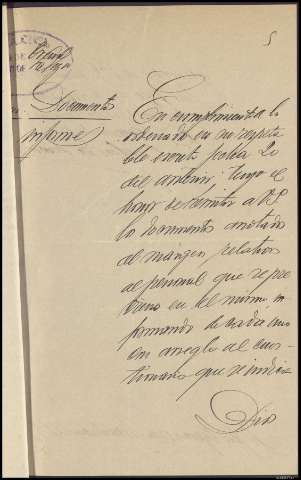 5
Documentos
informes
En cumplimiento a lo
ordenado en su respeta
ble escrito fecha 20
del anterior tengo el
honor de remitir a V.S.
los documentos anotados
al margen, relativos
al personal que se pre
en el mismo in
formando de cada uno
con arreglo al cues-
tionario que se indica
Dios